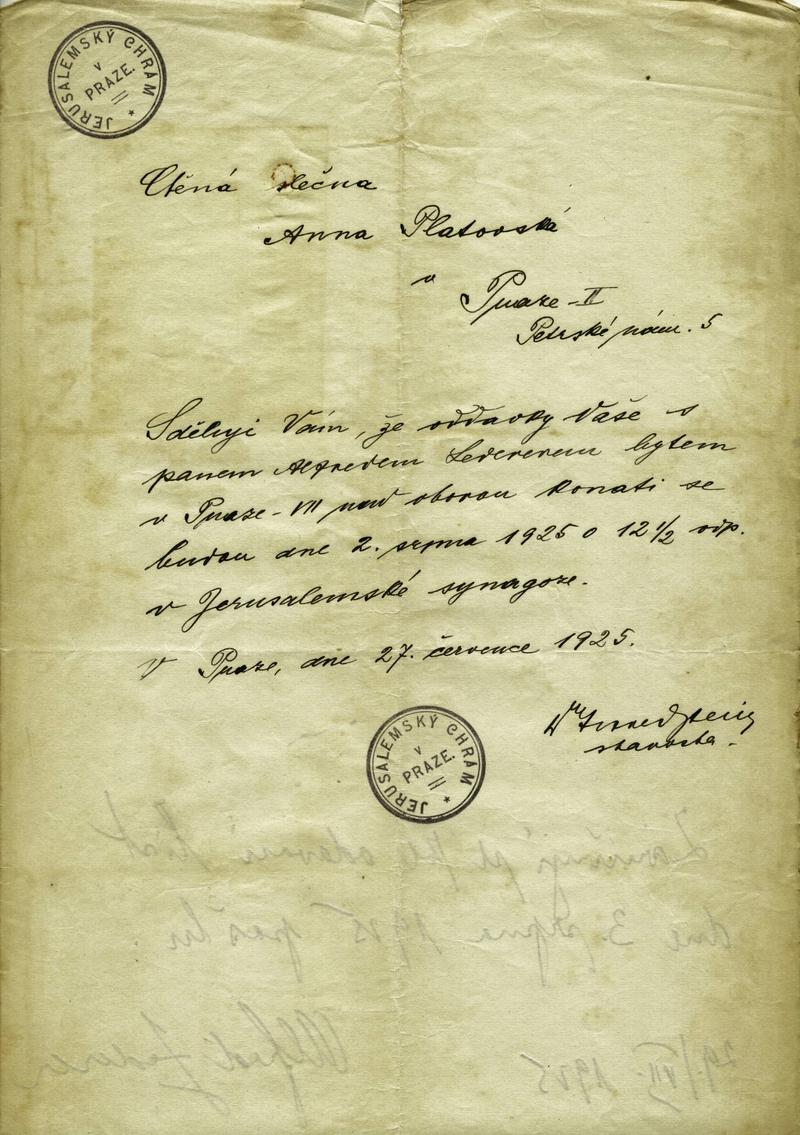 JERUSALEMSKÝ CHRÁM
v
PRAZE.
Ctěná slečna
Anna Platovská
v
Praze-II
Petrské nám. 5
Sděluji Vám, že oddavky Vaše s
panem Alfredem Ledererem bytem
v Praze-VII nad oborou konati se
budou dne 2. srpna 1925 o 12 1/2 odp.
v Jerusalemské synagoze.
V Praze, dne 27. července 1925.
starosta.
JERUSALEMSKÝ CHRÁM
v
PRAZE.
dne 3. srpna 1925
Alfred Lederer
29/VII. 1925